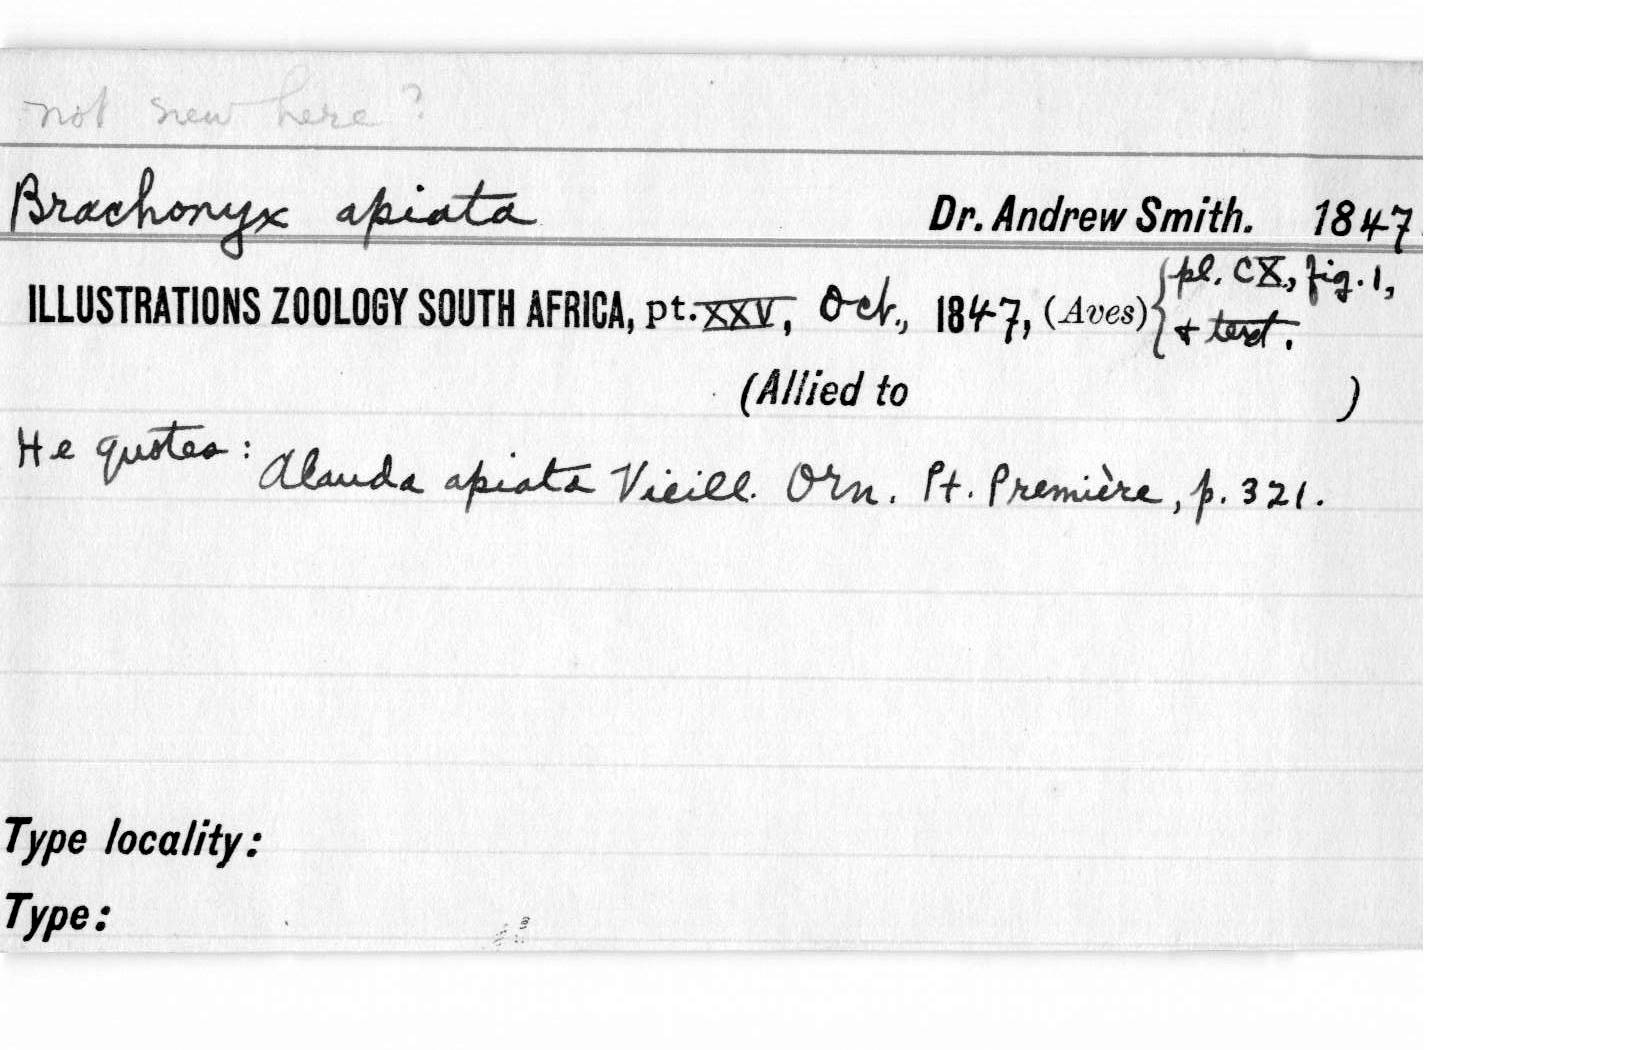 not new here?
Brachonyx apiata Dr. Andrew Smith. 1847
ILLUSTRATIONS ZOOLOGY SOUTH AFRICA, pt. XXV, Oct., 1847, (Aves) { pl. CX, fig. 1,
& text.
(Allied to )
He quotes: Alauda apiata Vieill. Orn. Pt. Première, p. 321.
Type locality:
Type: